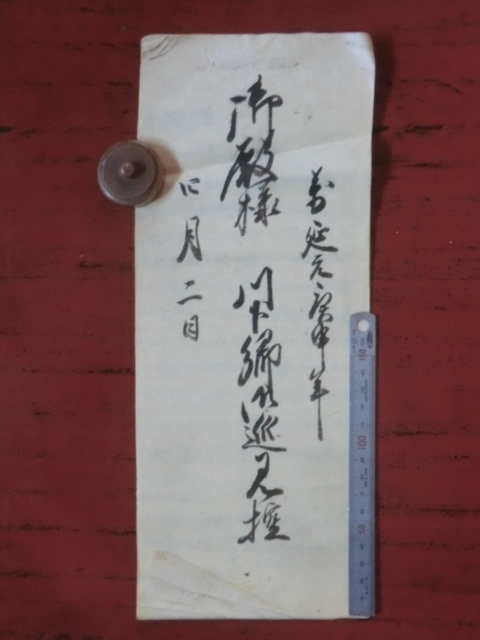 萬延元庚申年
御殿様 川下郷御巡見控
四月二日